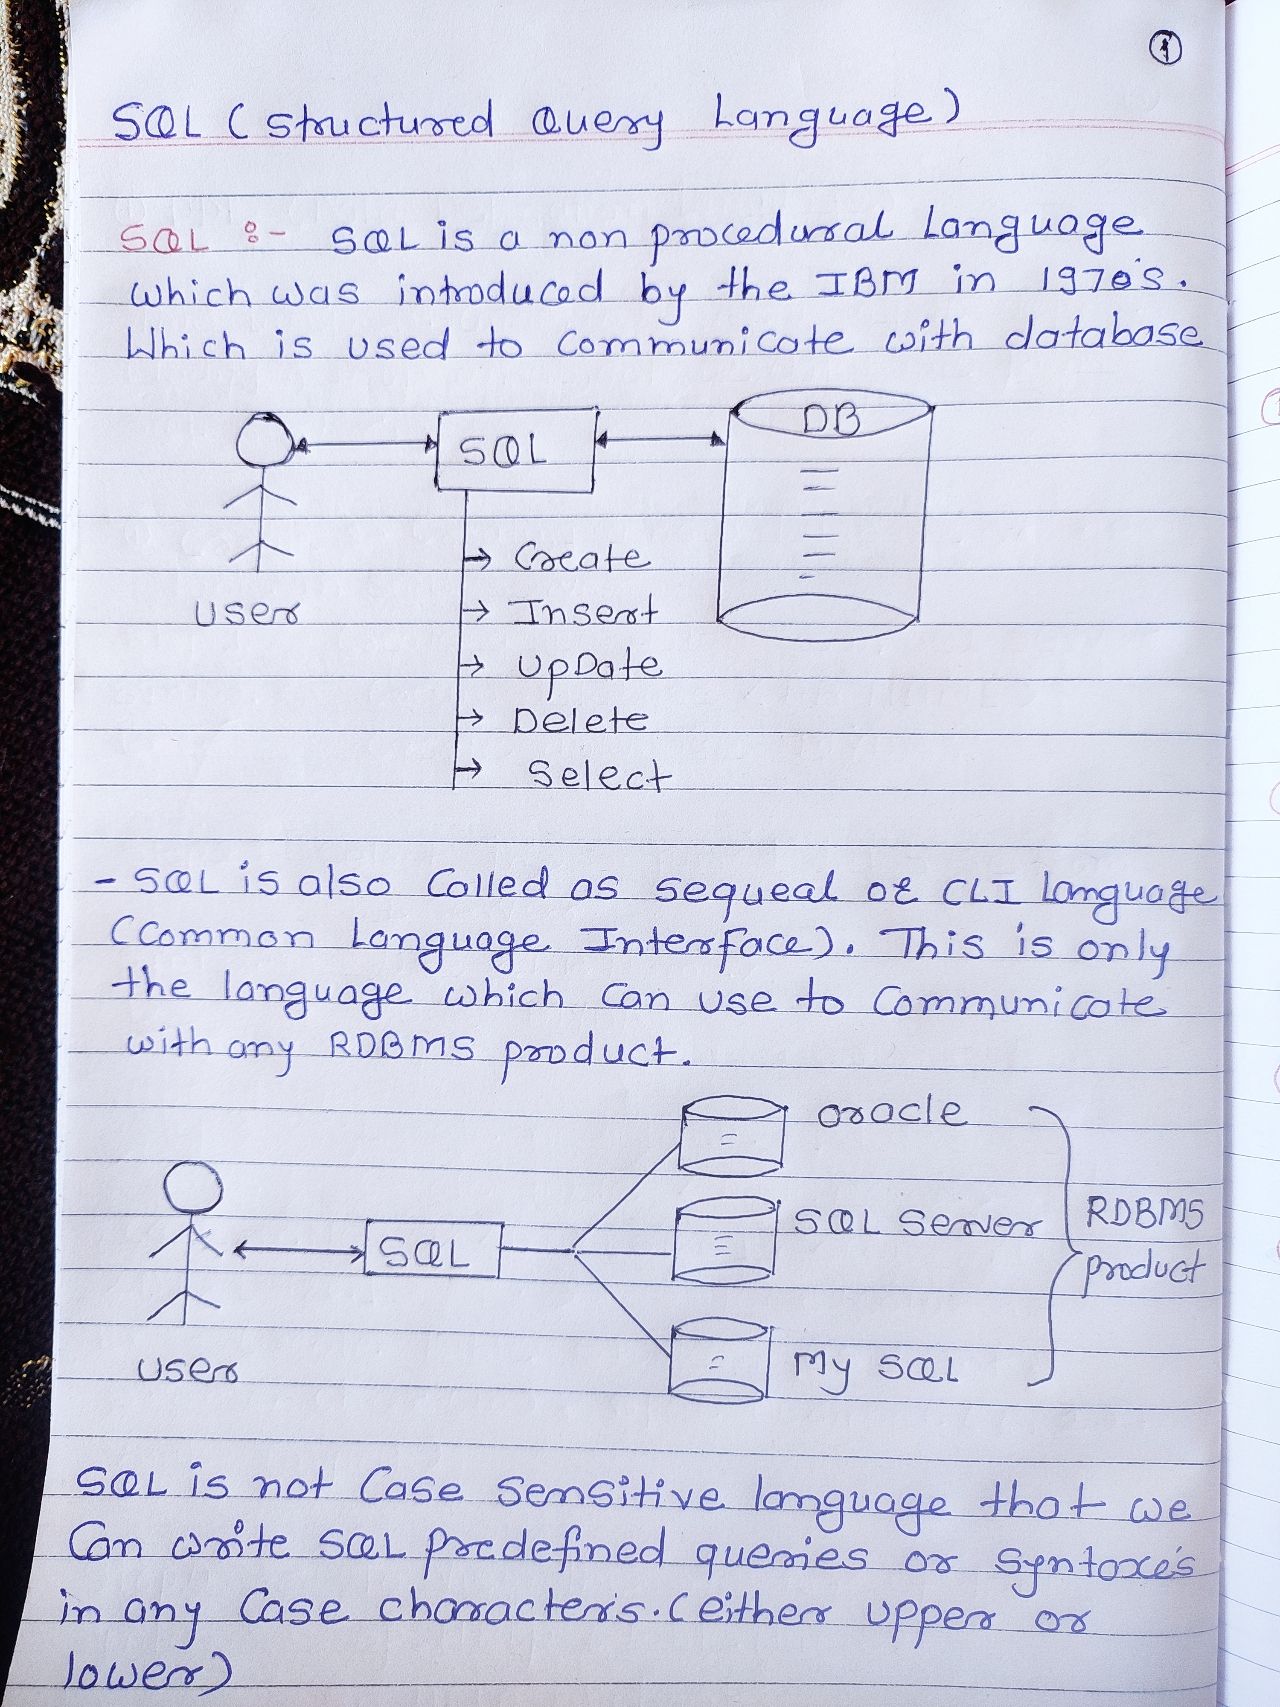 1
SQL (Structured Query Language)
SQL :- SQL is a non procedural Language
which was introduced by the IBM in 1970's.
Which is used to Communicate with database
DB
SQL
→ Create
user
→ Insert
→ UpDate
→ Delete
→ Select
- SQL is also Called as sequeal or CLI Language
(Common Language Interface). This is only
the language which can use to Communicate
with any RDBMS product.
oracle
SQL Server
RDBMS
SQL
product
user
My SQL
SQL is not Case Sensitive language that we
Can write SQL predefined queries or Syntaxe's
in any Case character's. (either upper or
lower)